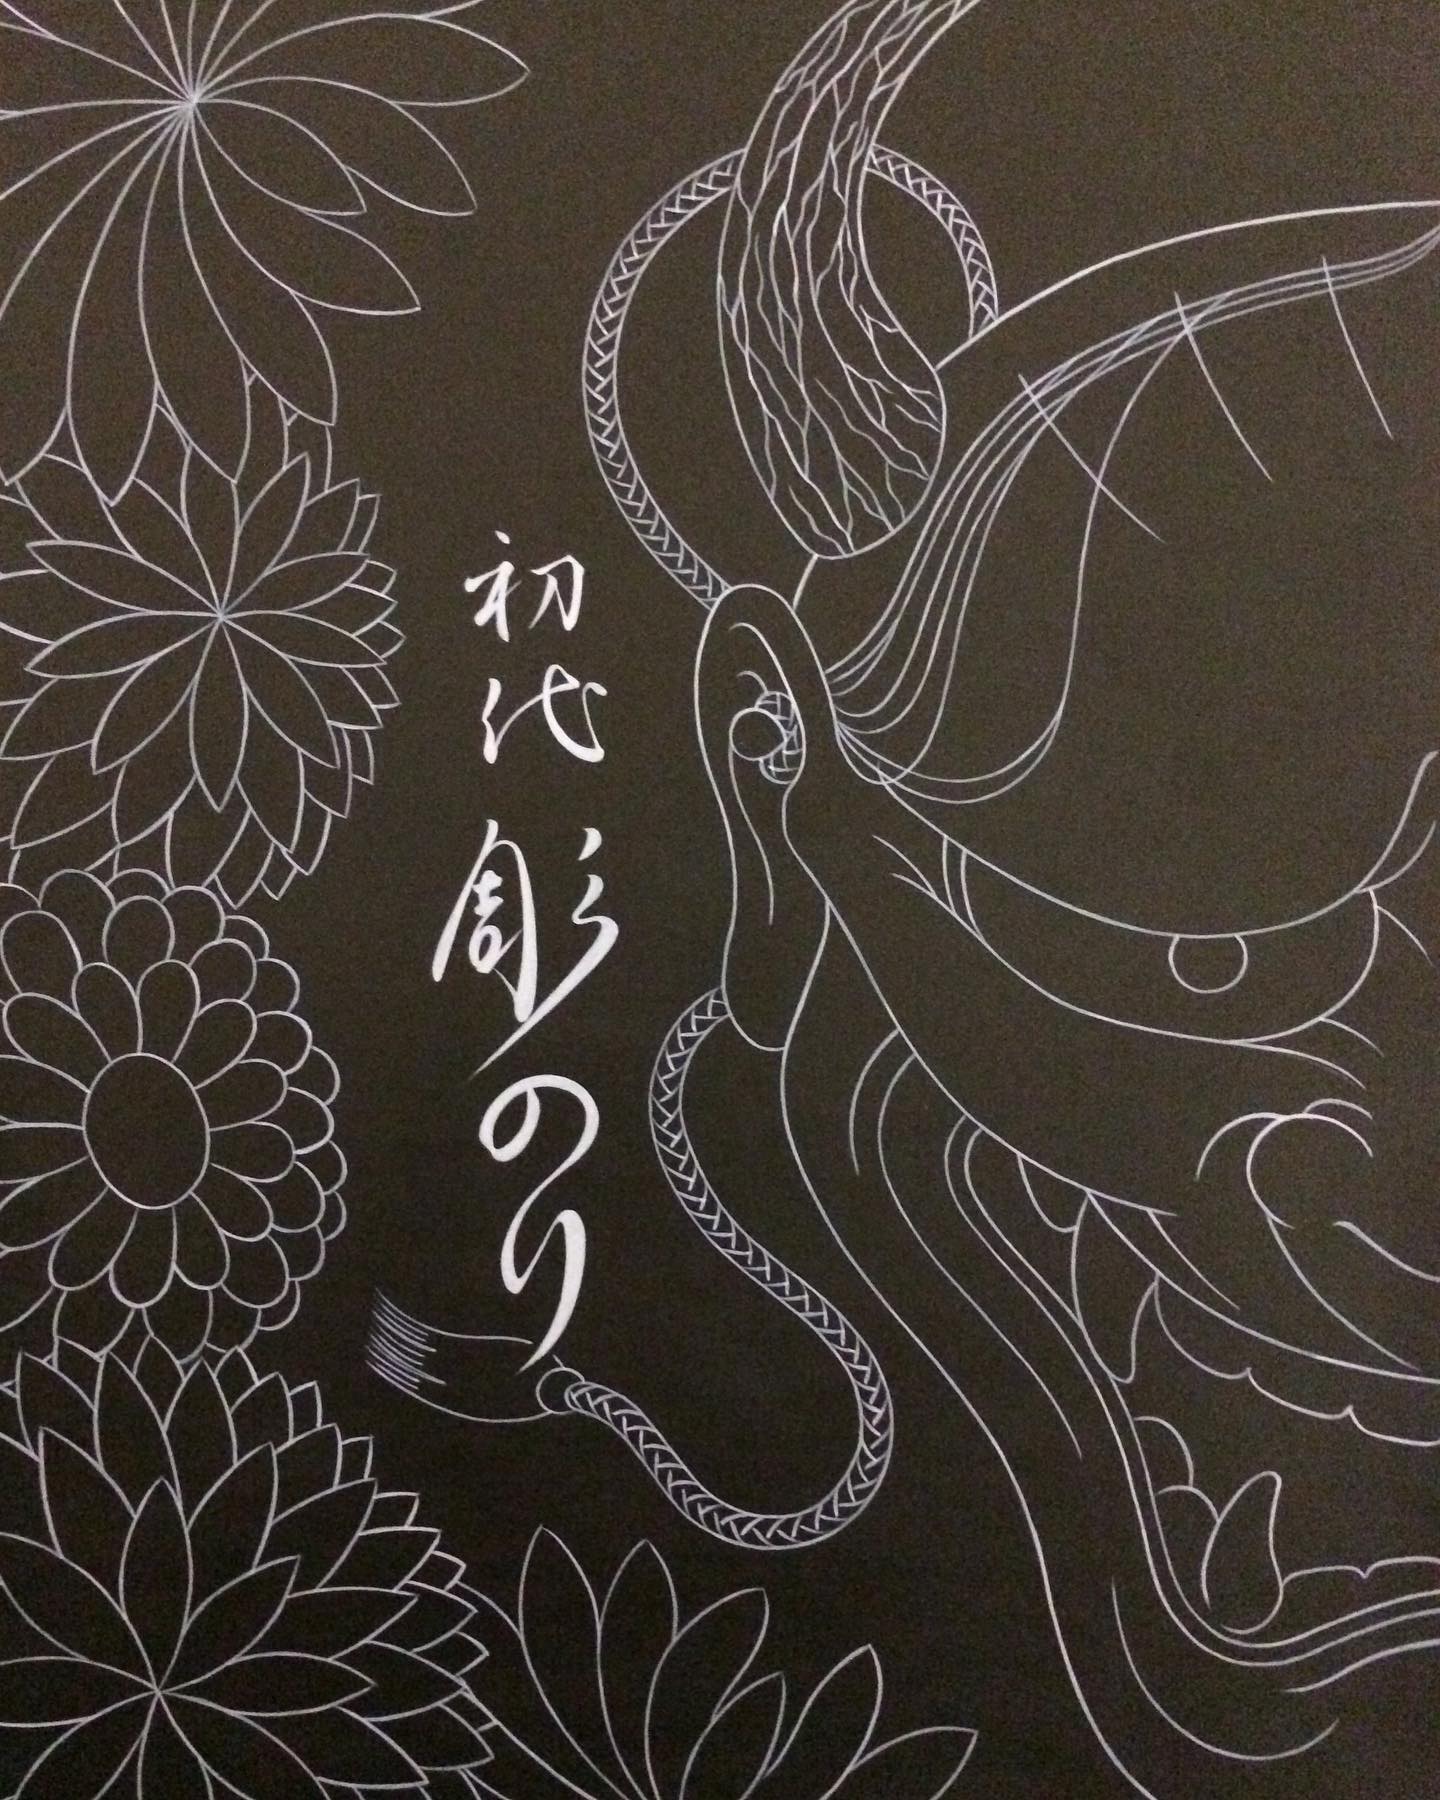 初代彫のり